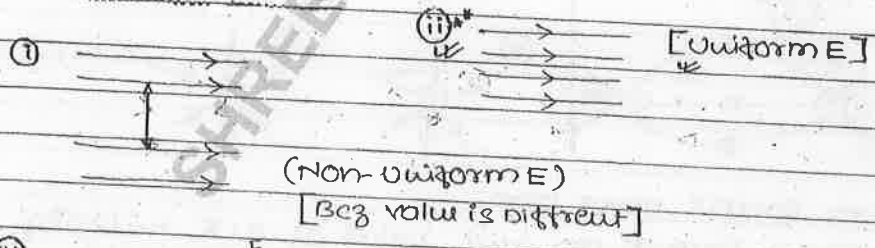 ①
ii **
[Uniform E]
(Non-Uniform E)
[Bcz value is Diffreut]